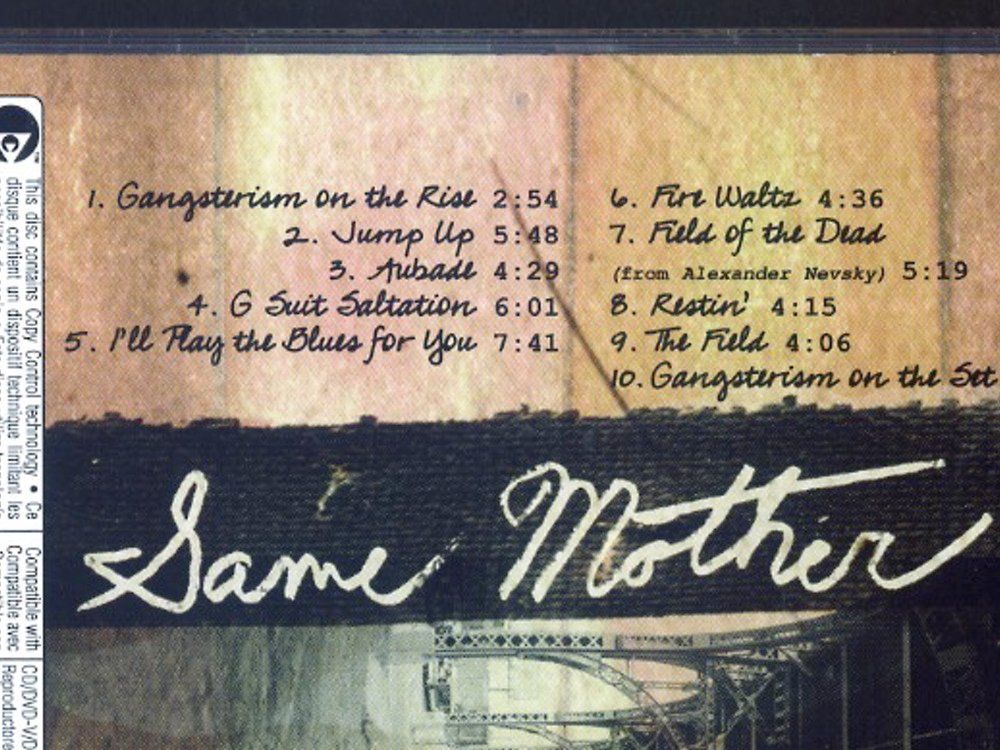 1. Gangsterism on the Rise 2:54
2. Jump Up 5:48
3. Aubade 4:29
4. G Suit Saltation 6:01
5. I'll Play the Blues for You 7:41
6. Fire Waltz 4:36
7. Field of the Dead
(from Alexander Nevsky) 5:19
8. Restin' 4:15
9. The Field 4:06
10. Gangsterism on the Set
Same Mother
This disc contains Copy Control technology • Ce
disque contient un dispositif technique limitant les
Compatible with
Compatible avec
CD/DVD-V/D
Reproductore